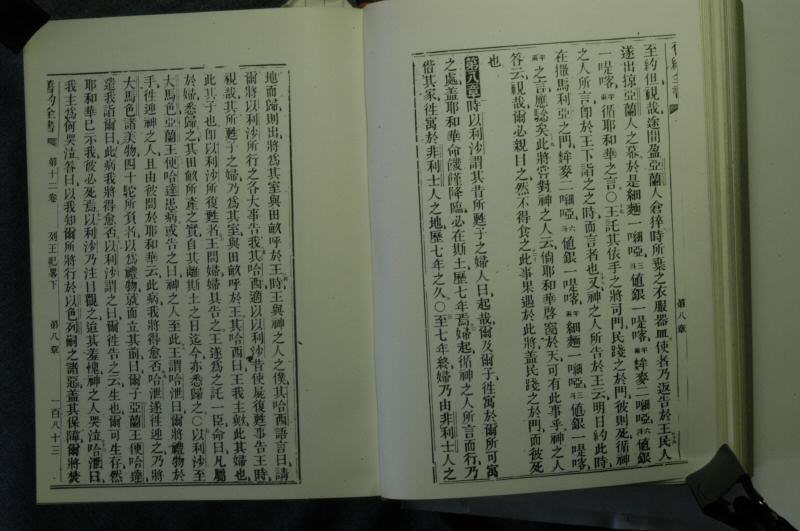 舊約全書
第八章
至約但視哉途間盈亞蘭人倉猝時所棄之衣服器皿使者乃返告於王民人
遂出掠亞蘭人之幕於是細麵一㗕啞値銀
一㖷喀絆麥二㗕啞値銀一㖷喀循耶和華之言○王託其依手之將司門民踐之於門彼則死循神
之人所言卽於王下詣之之時而言者也又神之人所告於王云明日約此時
在撒馬利亞之門絆麥二㗕啞値銀一㖷喀細麵一㗕啞値銀一㖷喀
之言應騐矣此將嘗對神之人云倘耶和華啓窗於天可有此事乎神之人
答云視哉爾必親目之然不得食之此事果遇於此將蓋民踐之於門而彼死
也
第八章時以利沙謂其昔所甦子之婦人曰起哉爾及爾子往寓於爾所可寓
之處蓋耶和華命饑饉降臨必在斯土歷七年焉婦起循神之人所言而行乃
偕其家往寓於非利士人之地歷七年之久○至七年終婦乃由非利士人之
地而歸則出將爲其室與田畝呼於王時王與神之人之僕其哈西語言曰請
爾將以利沙所行之各大事告我其哈西適以以利沙昔使屍復甦事告王時
視哉其所甦子之婦乃爲其室與田畝呼於王其哈西曰王我主歟此其婦也
此其子也卽以利沙所復甦者王問婦婦具告之王遂爲之託一臣命曰凡屬
於婦悉歸之其田畝所產之實自其離斯土之日迄今亦悉歸之○以利沙至
大馬色亞蘭王便哈達患病或告之曰神之人至此王謂哈泄曰爾將禮物於
手往迎神之人且由彼問於耶和華云此病我將得愈否哈泄遂往迎之乃將
大馬色諸美物四十駝所負者以爲禮物就而立其前曰爾子亞蘭王便哈達
遣我詣爾曰此病我將得愈否以利沙謂之曰爾往告之云生也爾可生存然
耶和華已示我彼必死焉以利沙乃注目觀之迨其羞愧神之人哭泣哈泄曰
我主爲何哭泣答曰以我知爾所將行於以色列嗣之諸惡蓋其保障爾將焚
舊約全書 第十二卷 列王紀畧下 第八章 一百八十三